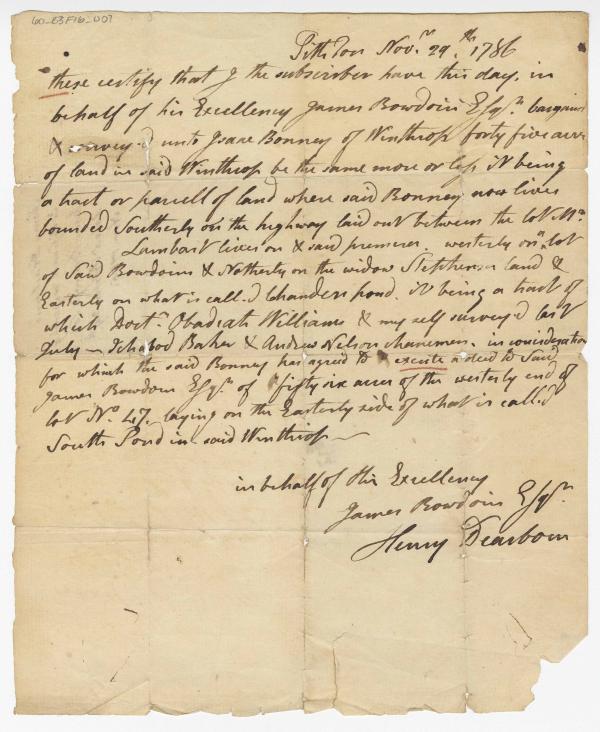 60-E3F16-007
Pittston Novr 29th. 1786
these certify that I the subscriber have this day, in
behalf of his Excellency James Bowdoin Esqr. bargain
& survey.d unto Isaac Bonney of Winthrop forty five acres
of land in said Winthrop be the same more or less it being
a tract or parcell of land where said Bonney now lives
bounded Southerly on the highway laid out between the lot Mr.
Lambart lives on & said premises. westerly on lot
of Said Bowdoins & Notherly on the widow Stephens land &
Easterly on what is call.d Chanders pond. it being a tract of
which Doctr. Obadiah Williams & my self survey.d last
July - Ichabod Baker & Andrew Nelson chainmen. in consideration
for which the said Bonney has agreed to excute a deed to Said
James Bowdoin Esqr. of fifty six acres of the westerly end of
lot No. 47. laying on the Easterly side of what is call.d
South Pond in said Winthrop —
in behalf of His Excellency
James Bowdoin Esqr.
Henry Dearborn